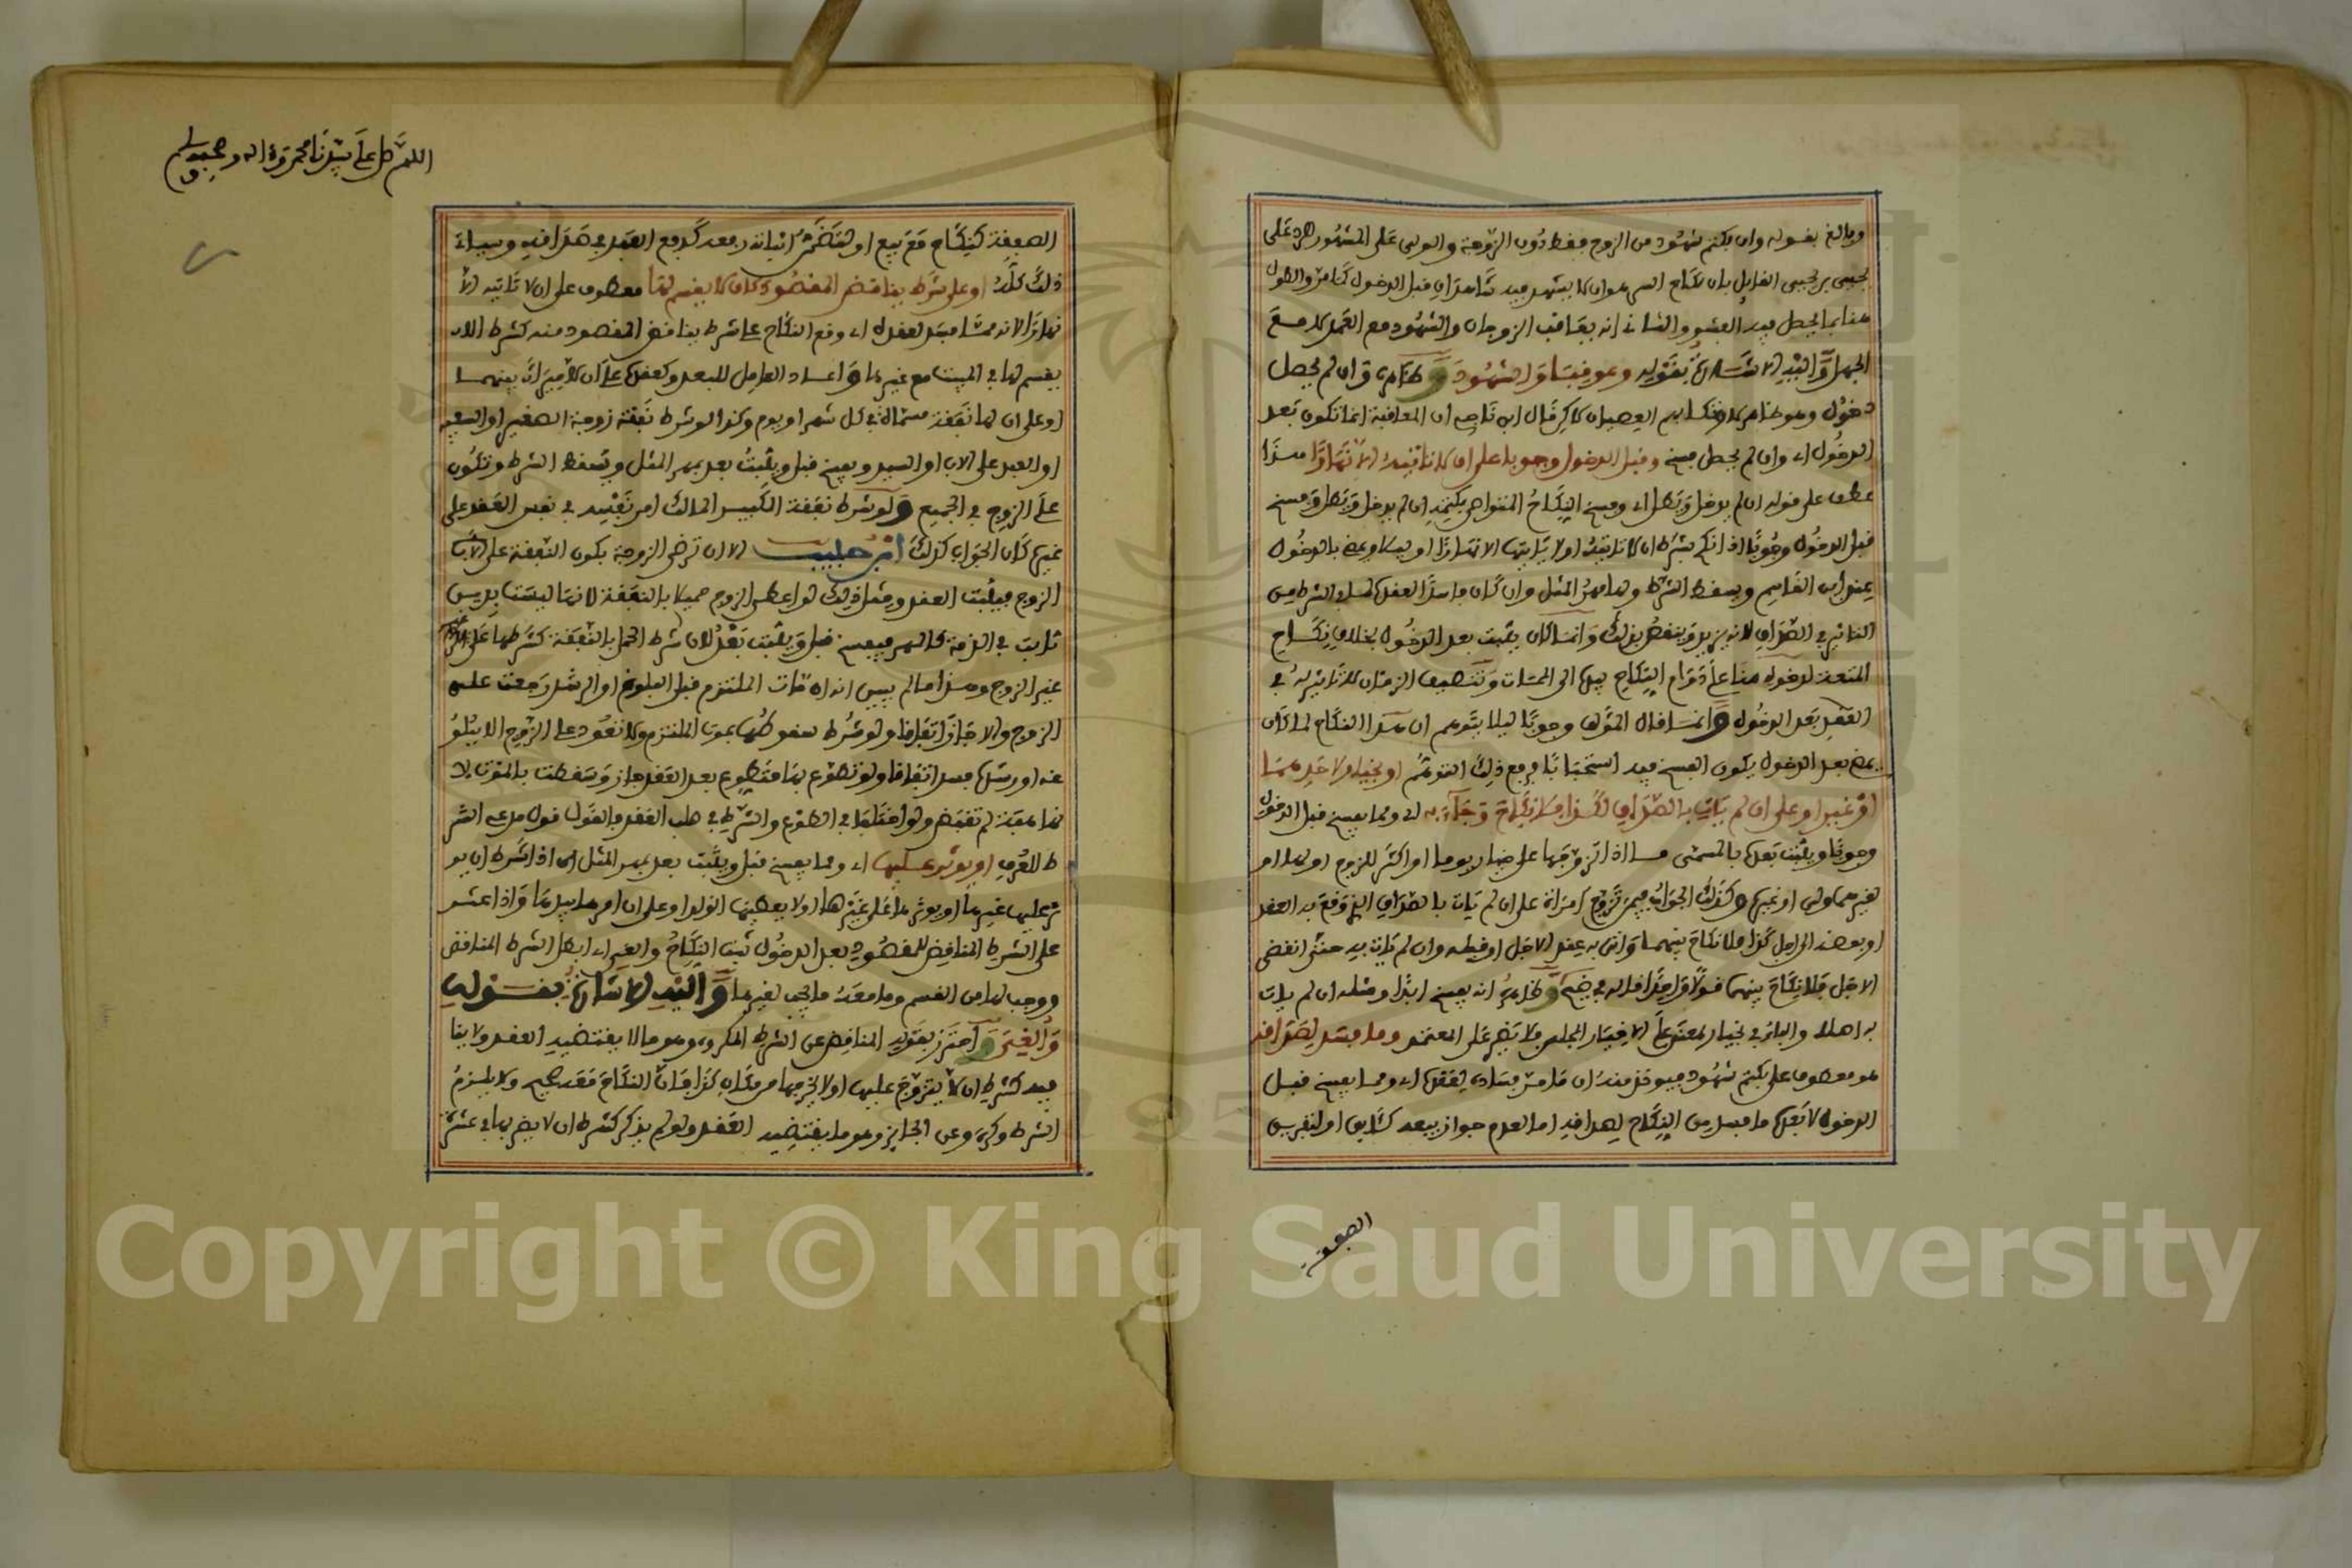 وبالغ بقوله وان بكتم شهود من الزوج فقط دون الزوجة والولى على المشهور لارد على
يحيى بن يحيى القايل بان نكاح السر هو ان لا يشهد فيه شاهدان قبل الدخول كما مر والطول
هنا بما يحصل فيه الفشو والثاني انه يعاقب الزوجان والشهود مع العمد لا مع
الجهل واليه الاشارة بقوله وعوقبا والشهود وظاهره وان لم يحصل
دخول وهو ظاهر لارتكابهم العصيان لاكن قال ابن ناجي ان المعاقبة انما تكون بعد
الدخول اي وان لم يحصل فسخ وقبل الدخول وجوبا على ان لا تاتيه الا نهارا هذا
عطف على قوله ان لم يدخل ويطل اي وفسخ النكاح المتواصى بكتمه ان لم يدخل ويطل وفسخ
قبل الدخول وجوبا اذا نكح بشرط ان لا تاتيه او لا ياتيها الا نهارا او ليلا ويمضي بالدخول
عند ابن القاسم ويسقط الشرط ولها مهر المثل وان كان فاسدا لعقده لما في الشرط من
التاثير في الصداق لانه يزيد وينقص بذلك وانما كان يثبت بعد الدخول بخلاف نكاح
المتعة لدخوله هنا على دوام النكاح فيها الى الممات وتنصيف الزمان لا تاثير له في
العقد بعد الدخول وانما قال المؤلف وجوبا ليلا يتوهم ان هذا النكاح لما كان
يمضي بعد الدخول يكون الفسخ فيه استحبابا فرفع ذلك التوهم او بخيار لاحدهما
او غير او على ان لم يات بالصداق لكذا فلا نكاح وجاء به اي ومما يفسخ قبل الدخول
وجوبا ويثبت بعده بالمسمى ما اذا تزوجها على خيار يوما او اكثر للزوج او لها او
لغيرهما ولي او غيره وكذلك الجواب فيمن تزوج امراة على ان لم يات بالصداق الذي وقع به العقد
او بعضه الى اجل كذا فلا نكاح بينهما واتى به عند الاجل او قبله وان لم يات به حتى انقضى
الاجل فلا نكاح بينهما قولا واحدا قاله في ضيح وظاهره انه يفسخ ابدا ومثله ان لم يات
به اصلا والباء في بخيار بمعنى على الا خيار المجلس فلا يضر على المعتمد وما فسد لصداقه
هو معطوف على بكتم شهود فيؤخذ منه ان ما مر فساده لعقده اي ومما يفسخ قبل
الدخول لا بعده ما فسد من النكاح لصداقه اما لعدم جواز بيعه كئابق او لتغرير
الصفقة
اللهم صل على سيدنا محمد وءاله وصحبه وسلم
الصفقة كنكاح مع بيع او لتضمن اثباته رفعه كدفع العبد في صداقه وسياتي
ذلك كله او على شرط يناقض المقصود كان لا يقسم لها معطوف على ان لا تاتيه الا
نهارا لانه مما فسد لعقده اي وقع النكاح على شرط يناقض المقصود منه كشرط ان لا
يقسم لها في المبيت مع غيرها واعاد العامل للبعد وكعقده على ان لا ميراث بينهما
او على ان لها نفقة مسماة في كل شهر او يوم وكذا لو شرط نفقة زوجة الصغير او السفيه
او العبد على الاب او السيد ويفسخ قبل ويثبت بعد بمهر المثل ويسقط الشرط وتكون
على الزوج في الجميع ولو شرط نفقة الكبير المالك امر نفسه في نفس العقد على
غيره كان الجواب كذلك ابن حبيب الا ان ترضى الزوجة بكون النفقة على
الزوج فيثبت العقد ومثل ذلك لو اعطى الزوج حميلا بالنفقة لانها ليست بدين
ثابت في الذمة كالمهر فيفسخ قبل ويثبت بعد لان شرط الحمل بالنفقة كشرطها على
غير الزوج وهذا ما لم يبين انه ان مات الملتزم قبل البلوغ او الرشد رجعت على
الزوج والا جاز اتفاقا ولو شرط سقوطها بموت الملتزم ولا تعود على الزوج الا ببلوغه
عنه او رشده فسد اتفاقا ولو تطوع بها متطوع بعد العقد جاز وسقطت بالموت لا
نها هبة لم تقبض ولو اختلفا في الطوع والشرط في صلب العقد فالقول قول مدعي الشر
ط للعرف او يوثر عليها اي ومما يفسخ قبل ويثبت بعد بمهر المثل ما اذا شرط ان يو
ثر عليها غيرها او يوثرها على غيرها او لا يعطيها الولد او على ان امرها بيدها واذا عثر
على الشرط المناقض للمقصود بعد الدخول ثبت النكاح والغي اي ابطل الشرط المناقض
ووجب لها من القسم وما معه ما يجب لغيرها واليه الاشارة بقوله
والغي واحترز بقوله المناقض عن الشرط المكروه وهو ما لا يقتضيه العقد ولا ينا
فيه كشرط ان لا يتزوج عليها او لا يخرجها من مكان كذا فان النكاح معه صحيح ولا يلزم
الشرط وكره وعن الجايز وهو ما يقتضيه العقد ولو لم يذكر كشرط ان لا يضر بها في عشرة